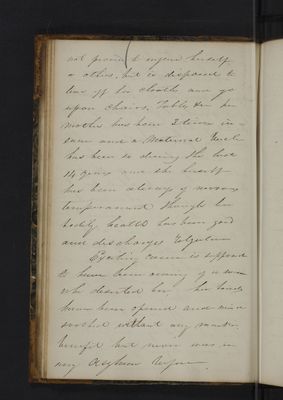 not prone to injure herself
or others, but is disposed to
tear off her cloaths and go
upon chairs, Tables &c her
mother has been 3 times in-
sane and a Maternal Uncle
has been so during the last
14 years and she herself
has been always of nervous
temperament though her
bodily health has been good
and discharges regular
Exciting cause is supposed
to have been of a man
who deserted her her bowels
have been opened and
without any
benefit but never was in
any Asylum before